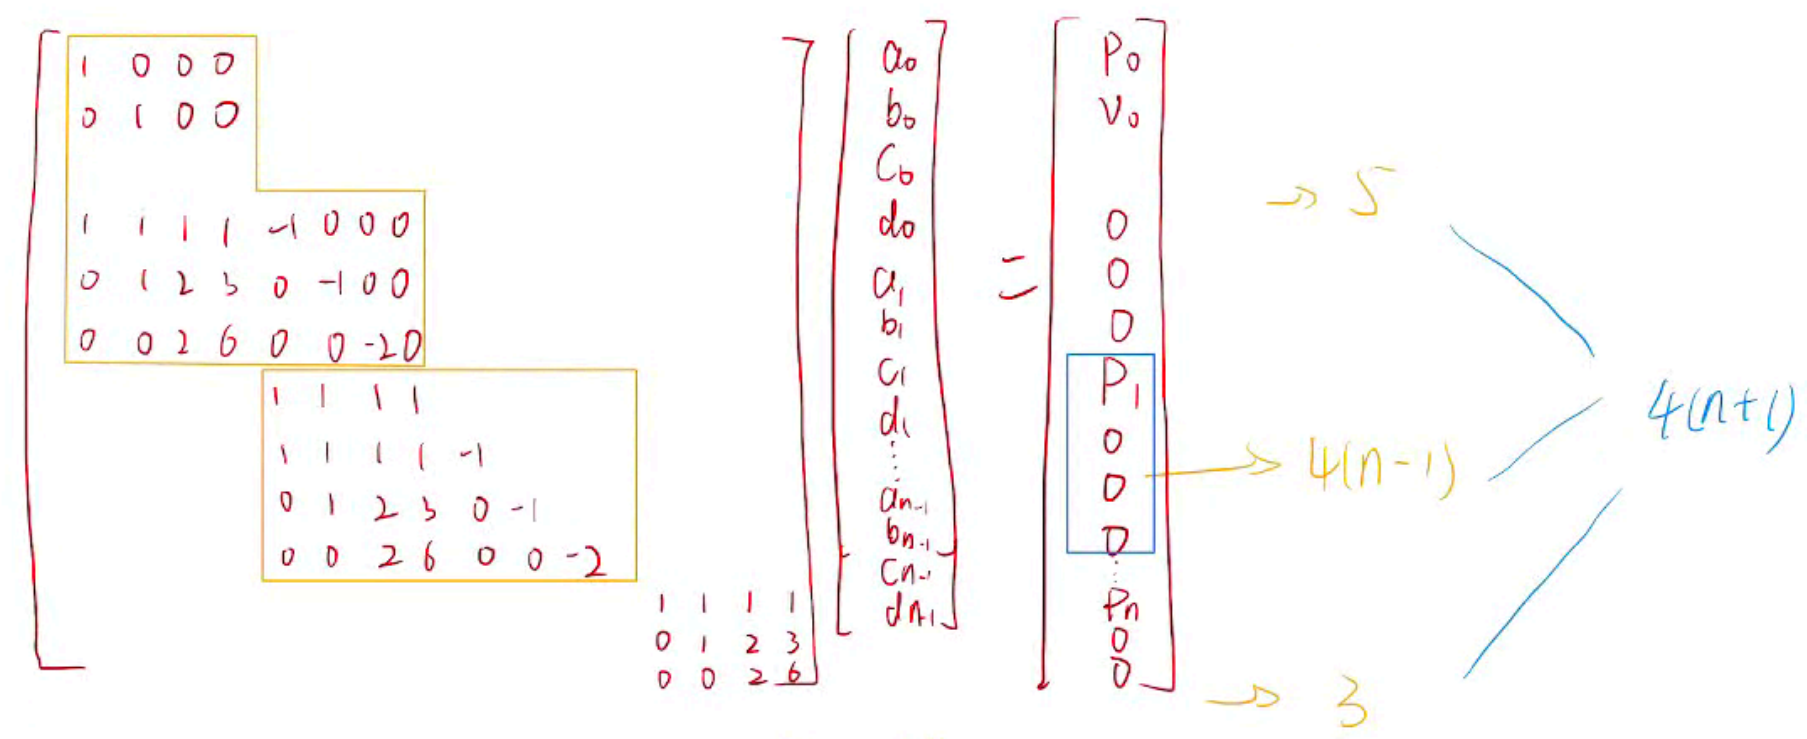 1 0 0 0
0 1 0 0
1 1 1 1 -1 0 0 0
0 1 2 3 0 -1 0 0
0 0 2 6 0 0 -2 0
1 1 1 1
1 1 1 1 -1
0 1 2 3 0 -1
0 0 2 6 0 0 -2
1 1 1 1
0 1 2 3
0 0 2 6
a₀
b₀
c₀
d₀
a₁
b₁
c₁
d₁
⋮
aₙ₋₁
bₙ₋₁
cₙ₋₁
dₙ₋₁
=
P₀
V₀
0
0
0
P₁
0
0
0
⋮
Pₙ
0
0
→ 5
→ 4(n-1)
→ 3
4(n+1)